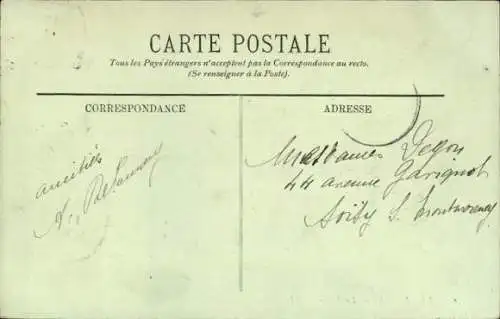 CARTE POSTALE
Tous les Pays étrangers n'acceptent pas la Correspondance au recto.
(Se renseigner à la Poste).
CORRESPONDANCE
ADRESSE
amitiés
A.
Mesdames
44 avenue
Soisy S. Montmorency